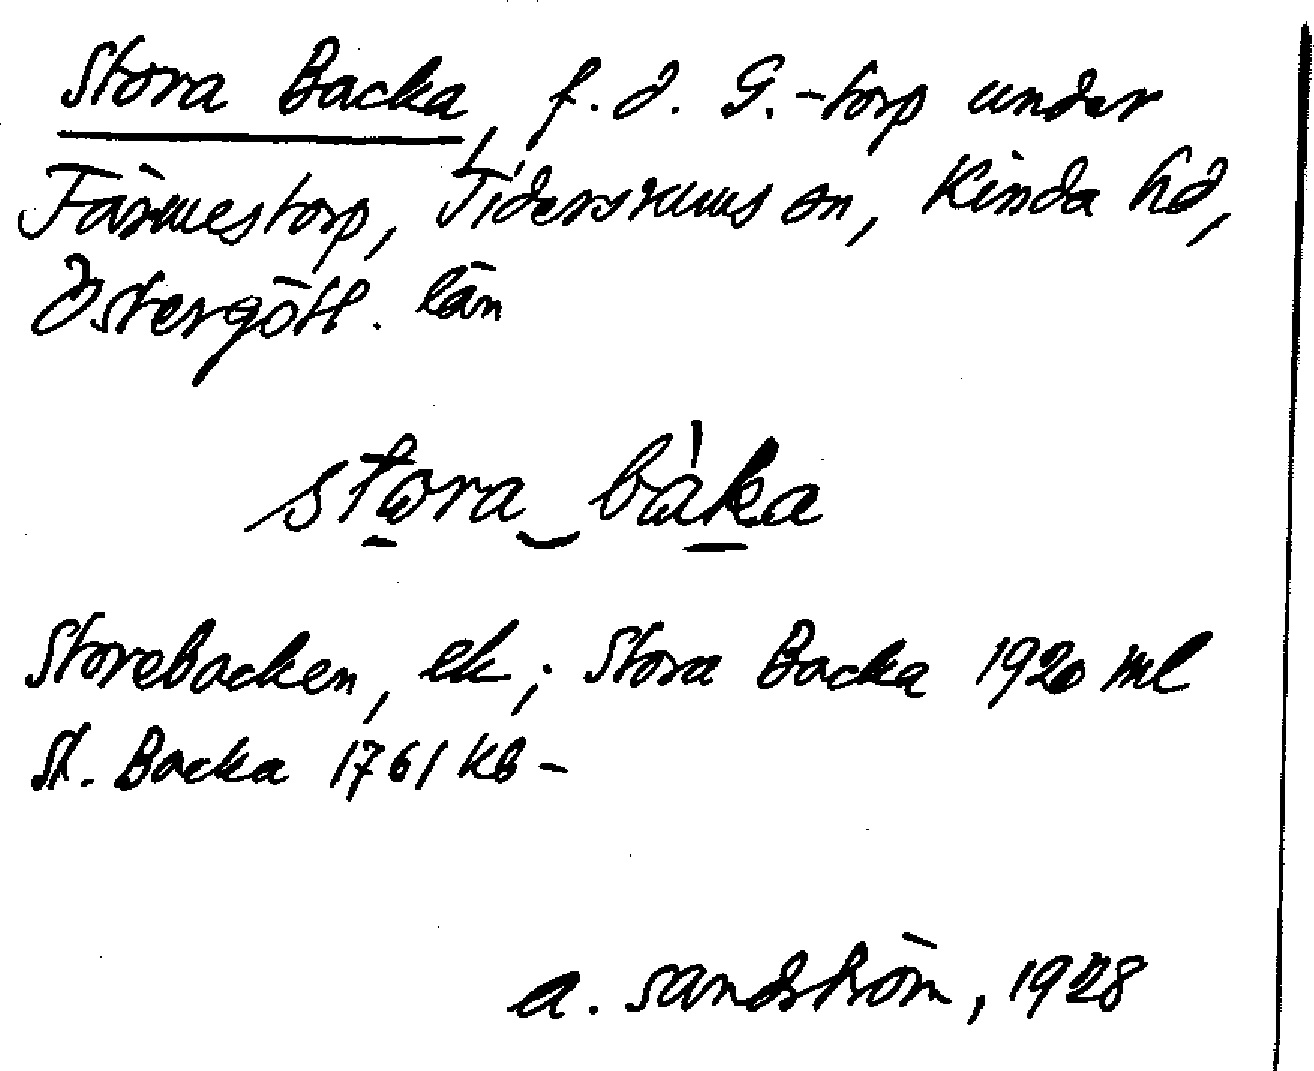 Stora Backa, f. d. G.-torp under
Färmestorp, Tidersrums sn, Kinda hd,
Östergötl. län
stora bàka
Storebacken, ek; Stora Backa 1920 ml
St. Backa 1761 kb -
A. Sandström, 1928